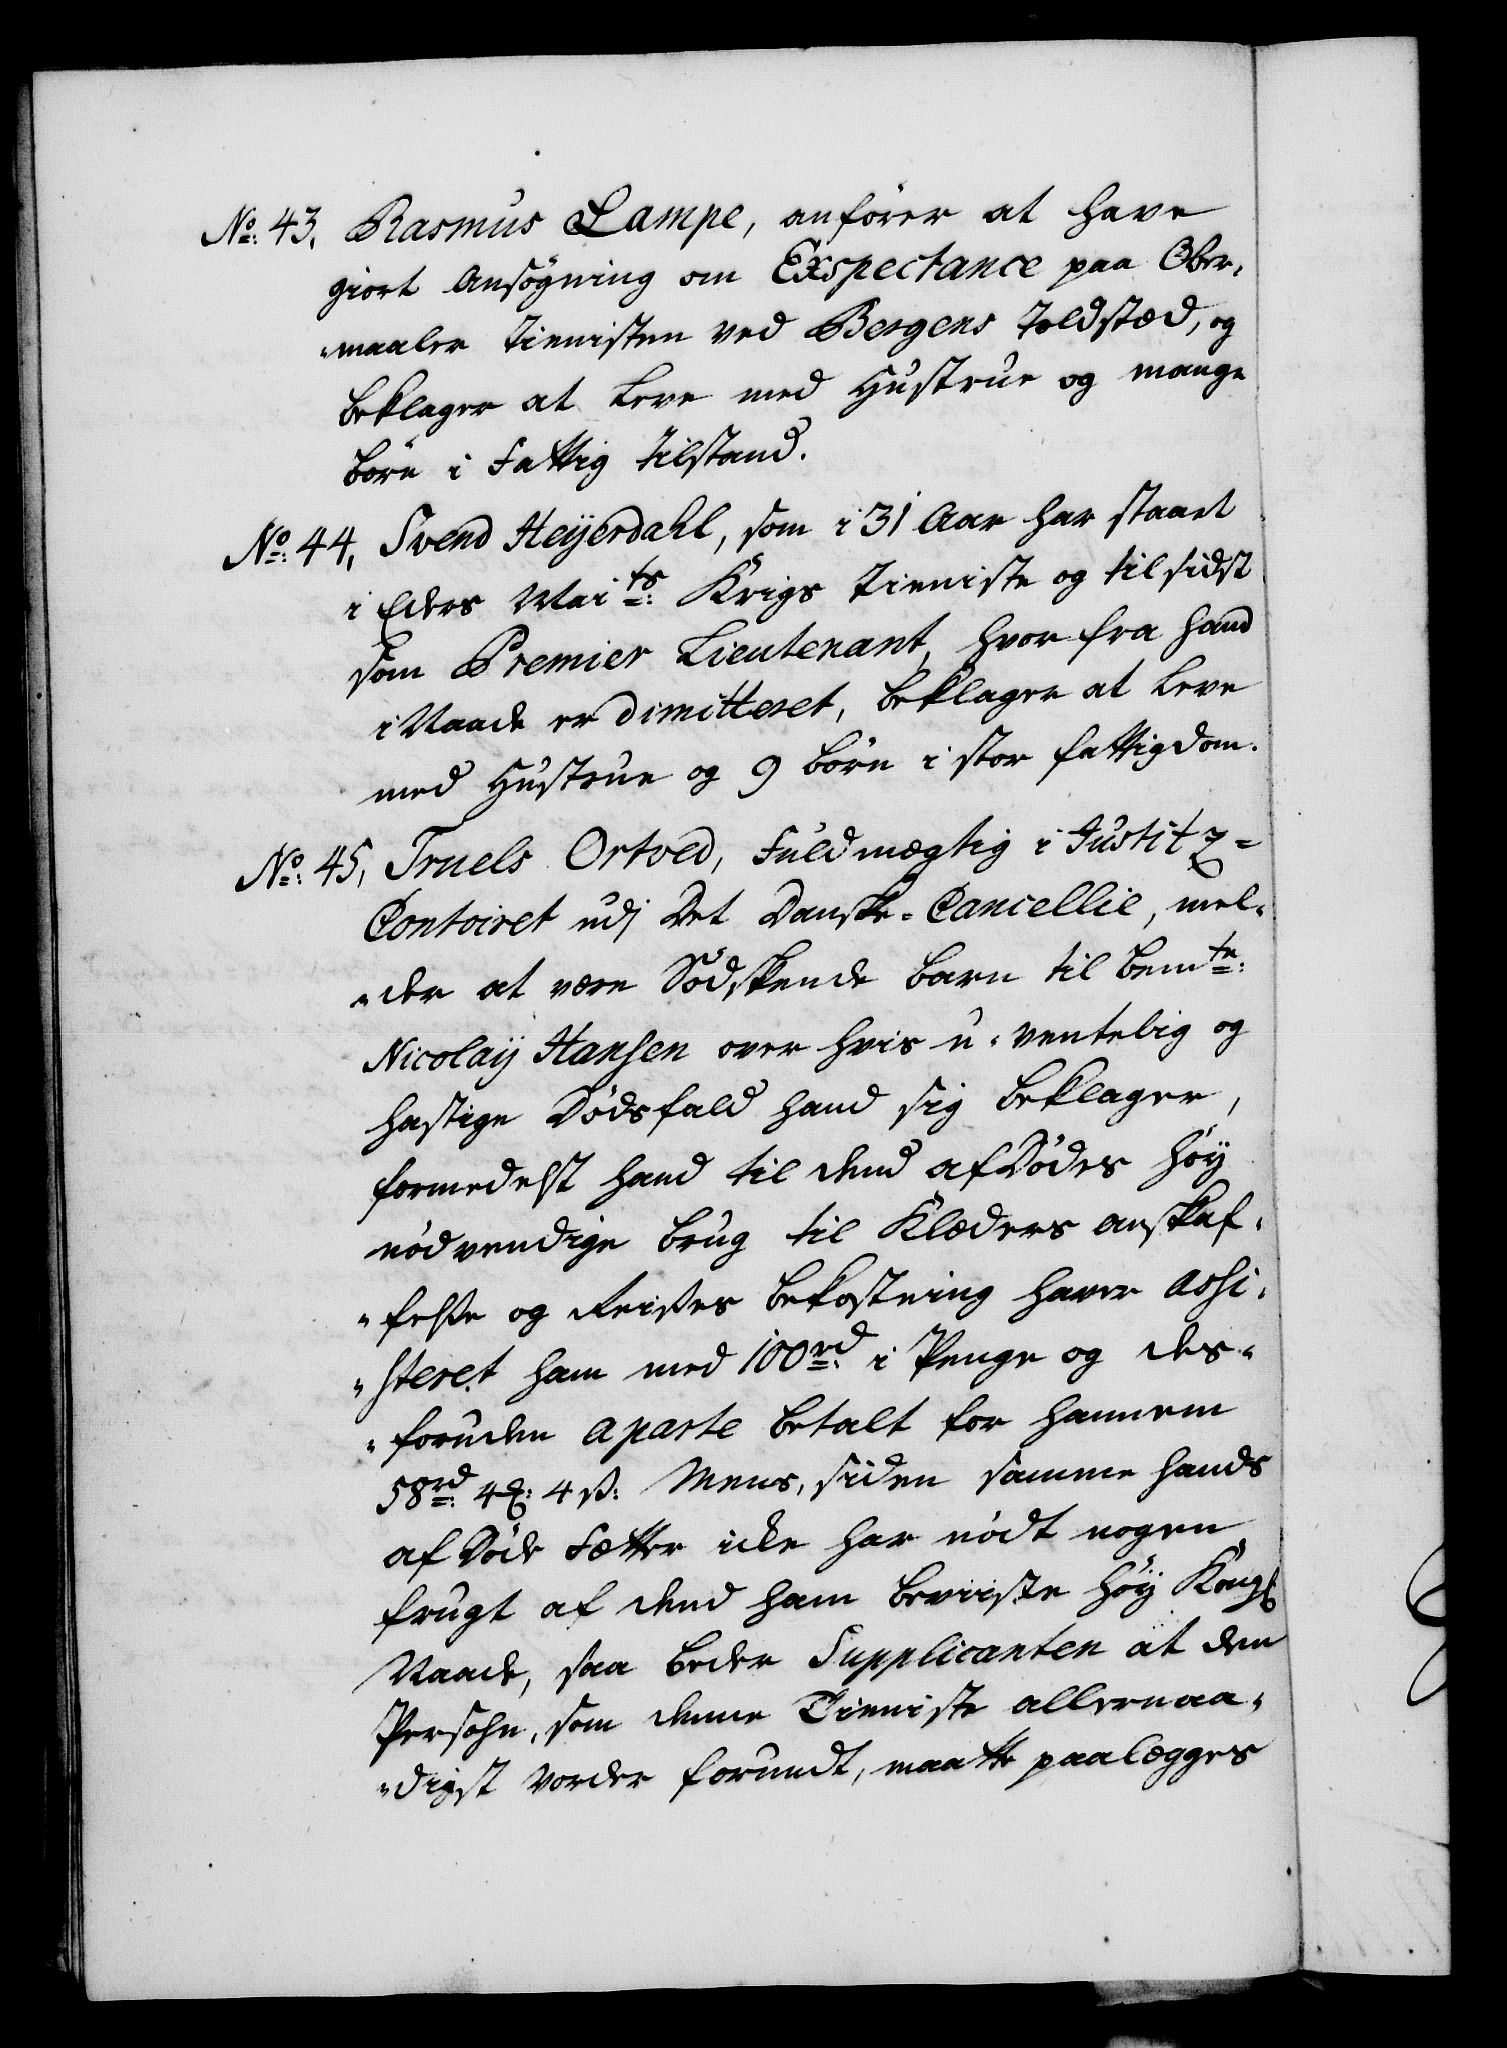 No: 43. Rasmus Lampe, anfører at have
giort Ansøgning om Exspectance paa Over,
"maaler Tienisten ved Bergens Toldstæd, og
beklager at leve med Hustrue og mange
børn i Fattig tilstand.
No: 44, Svend Heÿerdahl, som i 31 Aar har staaet
i Eders Maits: Krigs Tieniste og til sidst
som Premier Lieutenant, hvor fra hand
i Naade er dimitteret, beklager at leve
med Hustrue og 9 børn i stor fattigdom.
No: 45, Truels Ortved, Fuldmægtig i Justitz=
Contoiret udj Det Danske=Cancellie, mel,
"der at være Södskende barn til bemte:
Nicolaÿ Hansen over hvis u-ventelig og
hastige Dødsfald hand sig beklager,
formedelst hand til dend afdødes høÿ
nødvendige brug til Klæders anskaf,
"felse og Reises bekostning haver assi,
"steret ham med 100rd: i Penge og des"
"foruden aparte betalt for hannem
58rd: 4 ß: Mens, siden samme hands
afdøde Fætter icke har nødt nogen
frugt af dend ham beviiste høÿ Kongl
Naade, saa beder Supplicanten at den
Persohn, som denne Tieniste allernaa,
"digst vorder forundt, maatte paalægges